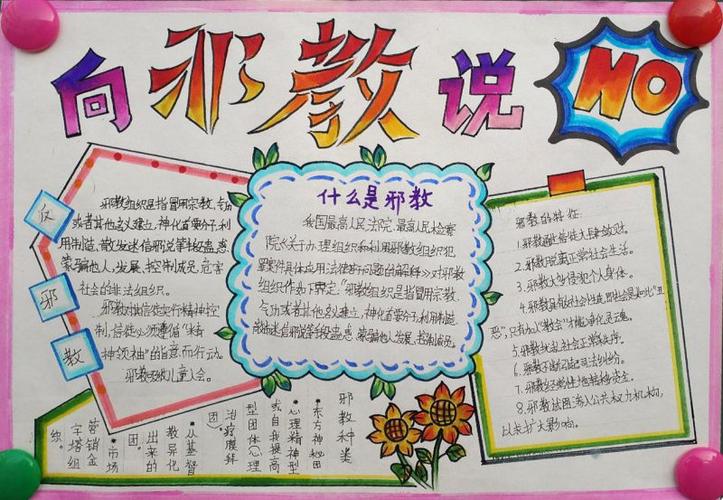 向邪教说NO
反
邪
教
邪教组织是指冒用宗教、气功
或者其他名义建立,神化首要分子,利
用制造、散发迷信邪说等手段蛊惑、
蒙骗他人,发展、控制成员,危害
社会的非法组织。
邪教对信徒实行精神控
制,信徒必须遵循"精
神领袖"的旨意而行动。
什么是邪教
我国最高人民法院、最高人民检察
院《关于办理组织和利用邪教组织犯
罪案件具体应用法律若干问题的解释》对邪教
组织作如下界定:"邪教组织是指冒用宗教、
气功或者其他名义建立,神化首要分子,利用制造、
散布迷信邪说等手段蛊惑、蒙骗他人,发展、控制成员,
邪教的特征:
2.邪教脱离正常社会生活。
3.邪教大多侵犯个人身体。
恶",只有加入"教会"才能净化灵魂。
5.邪教扰乱社会正常秩序。
6.邪教不断引起司法纠纷。
7.邪教经常性地转移资金。
8.邪教试图渗入公共权力机构,
以求扩大影响。
邪教种类
•东方神秘团
•心理精神型
或自我提高
型团体(心理
治疗膜拜
团)。
•从基督
教异化
出来的
•市场
营销金
字塔组
织。